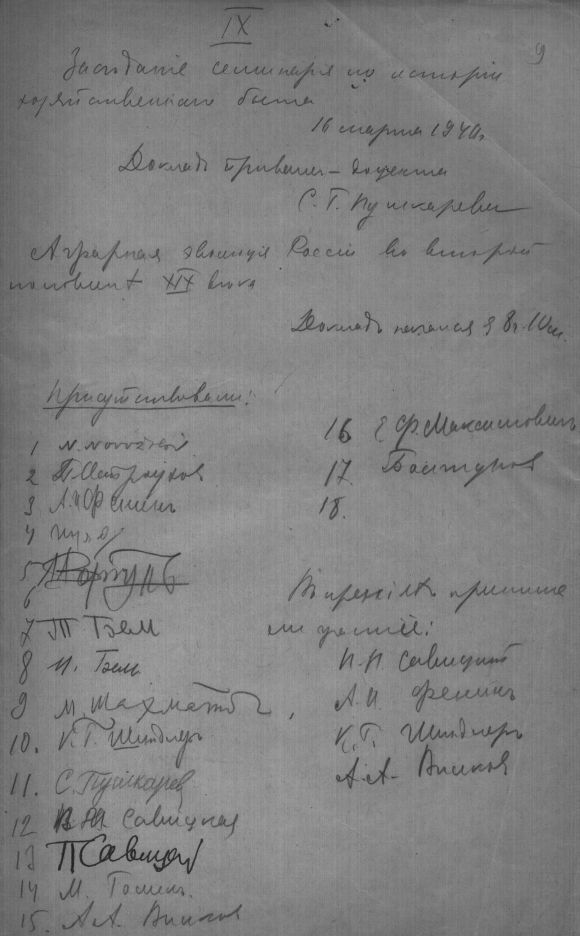 IX
9
Заседанiе семинарiя по исторiи
хозяйственнаго быта
16 марта 1940г.
Докладъ приватъ-доцента
С. Г. Пушкарева
Аграрная эволюцiя Россiи во второй
половинѣ XIX вѣка
Докладъ начался в 8 ч. 10 м.
Присутствовали:
1
2
3 А. И. Фенинъ
4
5
6
7 Т. Бэм
8 И. Бэм
9 М. Шахматовъ
10. К. Г. Шиндлеръ
11. С. Пушкарев
12 В. И. Савицкая
13 П Савицкий
14 М.
15. А. А. Вилков
16 Е. Ф. Максимовичъ
17
18.
Въ пренiяхъ приняли
участiе:
П. Н. Савицкий
А. И. Фенинъ
К. Г. Шиндлеръ
А. А. Вилков